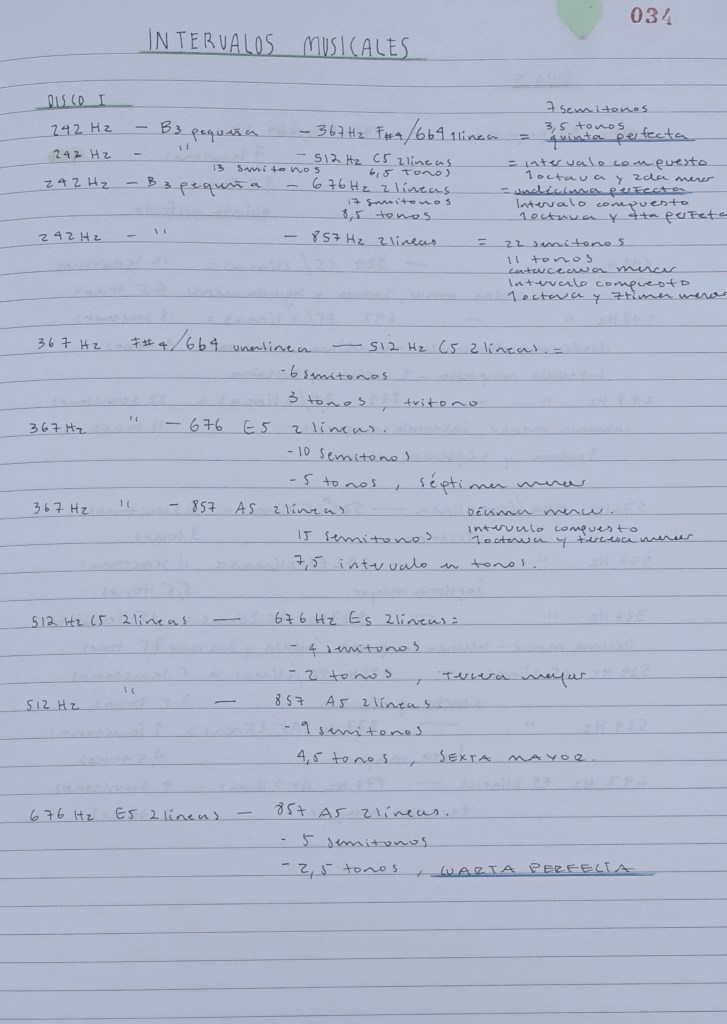 034
INTERVALOS MUSICALES
DISCO I
7 semitonos
242 Hz – B3 pequeña – 367Hz F#4/Gb4 1linea = 3,5 tonos
quinta perfecta
242 Hz – " – 512 Hz C5 2lineas = intervalo compuesto
13 smitonos 6,5 tonos 1octava y 2da menor
242 Hz – B3 pequeña – 676Hz 2lineas = undécima perfecta
17 semitonos Intervalo compuesto
8,5 tonos 1octava y 4ta perfeta
242 Hz – " – 857Hz 2lineas = 22 semitonos
11 tonos
menor
Intervalo compuesto
1octava y 7tima menor
367 Hz F#4/Gb4 unalinea — 512 Hz C5 2lineas. =
-6 semitonos
3 tonos, tritono
367Hz " – 676 E5 2lineas.
-10 semitonos
-5 tonos, séptima menor
367 Hz " – 857 A5 2lineas Décima menor.
15 semitonos Intervalo compuesto
1octava y tercera menor
7,5 intervalo en tonos.
512 Hz C5 2lineas — 676 Hz E5 2lineas=
- 4 semitonos
- 2 tonos, tercera mayor
512 Hz " — 857 A5 2lineas
-9 semitonos
4,5 tonos, SEXTA MAYOR.
676 Hz E5 2lineas – 857 A5 2lineas.
- 5 semitonos
- 2,5 tonos, CUARTA PERFECTA